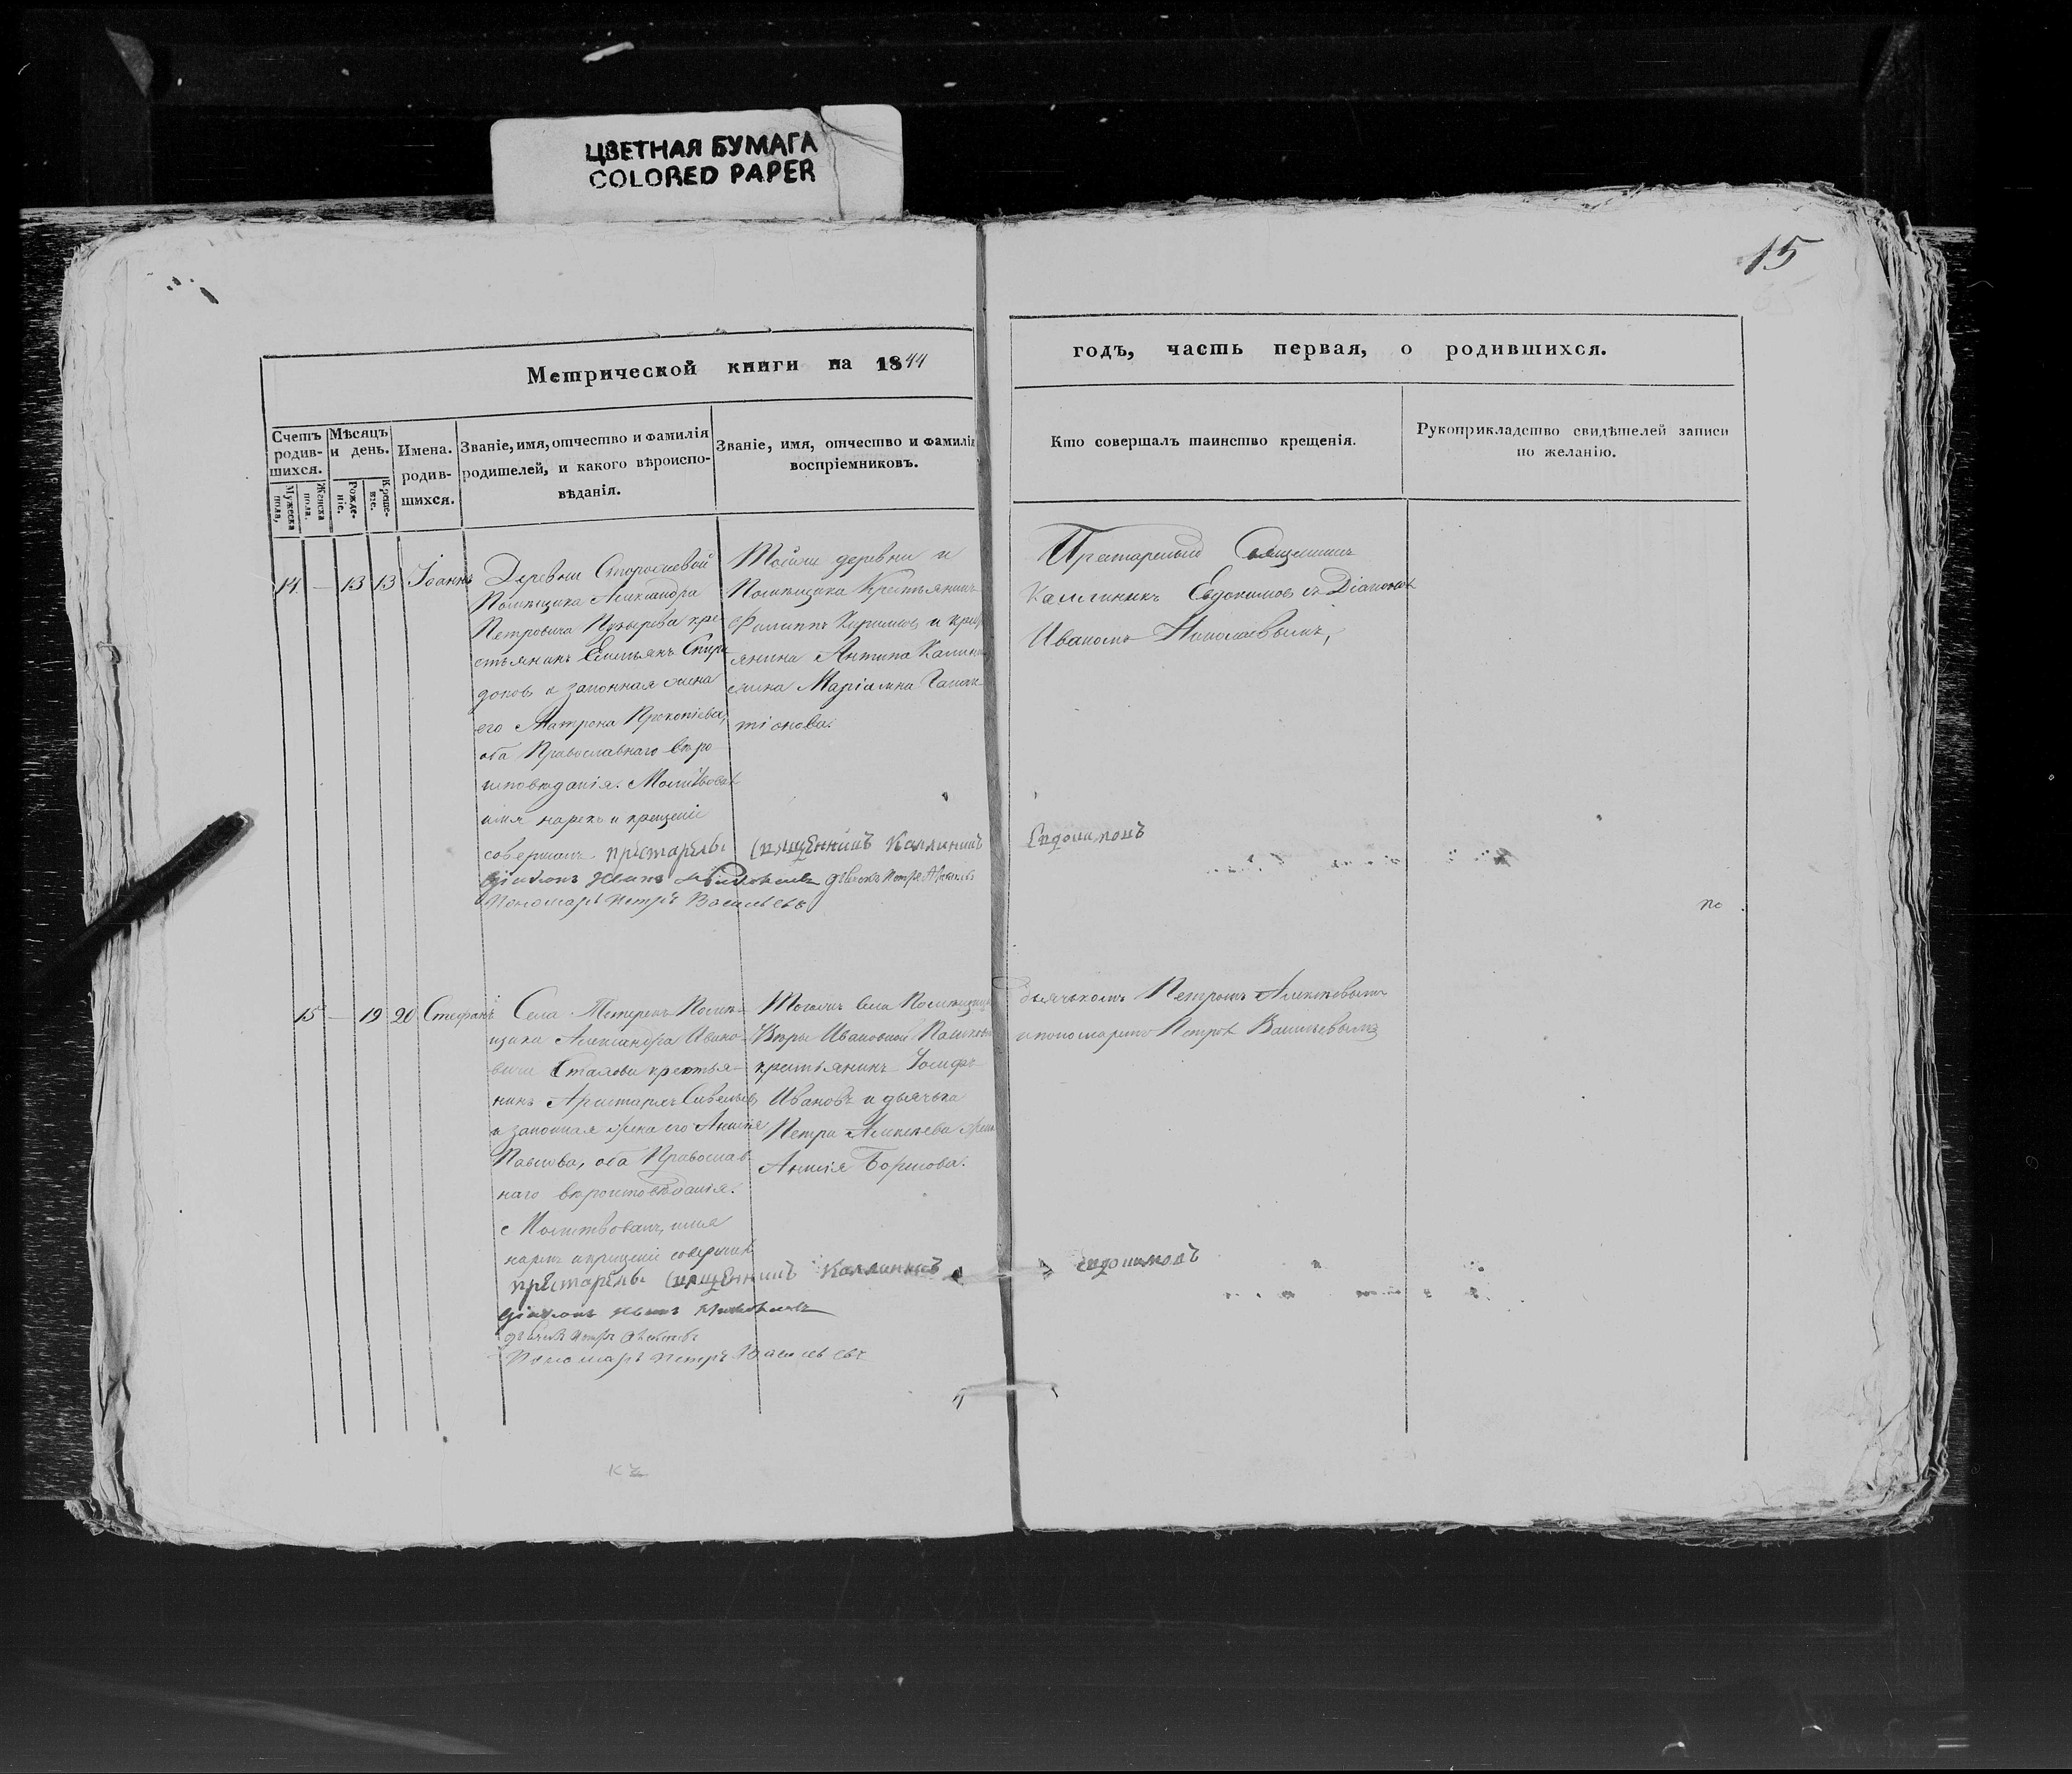 ЦВЕТНАЯ БУМАГА
COLORED PAPER
15
Метрической книги на 1844
годъ, часть первая, о родившихся.
Счетъ родив-шихся.
Мужеска пола,
Женска пола.
Мѣсяцъ и день.
Рожде-ніе.
Креще-ніе.
Имена. родив-шихся.
Званіе, имя, отчество и фамилія
родителей, и какого вѣроиспо-
вѣданія.
Званіе, имя, отчество и фамилія
воспріемниковъ.
Кто совершалъ таинство крещенія.
Рукоприкладство свидѣтелей записи
по желанію.
14. — 13 13 Іоаннъ
Деревни
Помѣщика Александра
Петровича Пузырева кре
стьянинъ Емельянъ Спири
доновъ и законная жена
его Матрона Прокопіева,
оба Православнаго вѣро
исповѣданія. Молитвовалъ
имя нарекъ и крещеніе
совершалъ престарѣлы Священникъ Каллиникъ Евдокимовъ
діаконъ Иванъ Николаевъ дьячекъ Петръ
Пономарь Петръ Васильевъ
Тойже деревни и
Помѣщика Крестьянинъ
Филиппъ и крест
янина Антипа
жена Маріамна Галак
тіонова.
Престарелый Священникъ
Каллиникъ Евдокимовъ съ Діакономъ
Иваномъ Николаевымъ,
по
15 — 19 20 Стефанъ
Села Помѣ-
щика Александра Ивано-
вича крестья-
нинъ Аристархъ Савельевъ
и законная жена его Анисія
Павлова, оба Православ-
наго вѣроисповѣданія.
Молитвовалъ, имя
нарекъ и крещеніе совершалъ
престарѣлы Священникъ Каллиникъ Евдокимовъ
діаконъ Иванъ Николаевъ
дьячекъ Петръ
Пономарь Петръ Васильевъ
Тогожъ села Помѣщицы
Вѣры Ивановной
крестьянинъ Іосифъ
Ивановъ и дьячька
Петра Алексѣева жена
Анисія Борисова.
дьячькомъ Петромъ Алексѣевымъ
и пономаремъ Петромъ Васильевымъ
къ